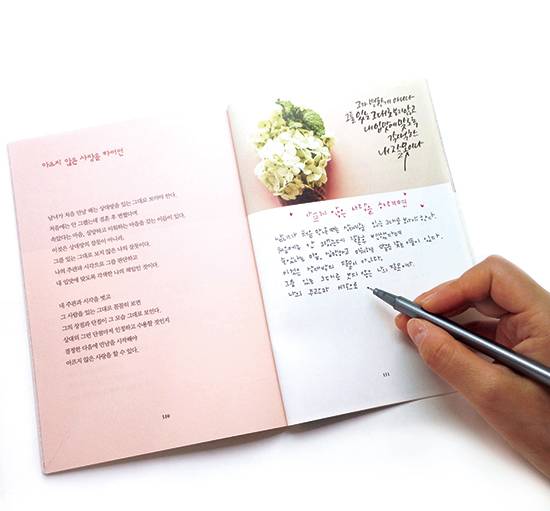 아프지 않은 사랑을 하려면
남녀가 처음 만날 때는 상대방을 있는 그대로 보아야 한다.
처음에는 안 그랬는데 결혼 후 변했다며
속았다는 마음, 상대하고 미워하는 마음을 갖는 이들이 있다.
이것은 상대방의 잘못이 아니라,
그를 있는 그대로 보지 않은 나의 잘못이다.
나의 주관과 시각으로 그를 판단하고
내 입맛에 맞도록 각색한 나의 책임인 것이다.
내 주관과 시각을 벗고
그 사람을 있는 그대로 꼼꼼히 보면
그의 장점과 단점이 그 모습 그대로 보인다.
상대의 그런 단점까지 인정하고 수용할 것인지
결정한 다음에 만남을 시작해야
아프지 않은 사랑을 할 수 있다.
110
그가 변한 게 아니라
그를 있는 그대로 보지 않고
내 입맛에 맞도록
각색한
내 잘못이다
아프지 않은 사랑을 하려면
남녀가 처음 만날 때는 상대방을 있는 그대로 보아야 한다.
처음에는 안 그랬는데 결혼 후 변했다며
속았다는 마음, 미워하는 마음을 갖는 이들이 있다.
이것은 상대방의 잘못이 아니라,
그를 있는 그대로 보지 않은 나의 잘못이다.
나의 주관과 시각으로
111